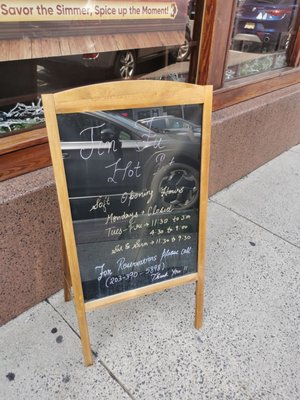 Savor the Simmer, Spice up the Moment!
Jin Fu
Hot Pot
Soft Opening Hours
Mondays → Closed
Tues-Fri → 11:30 to 3pm
4:30 to 9:00
Sat & Sun → 11:30 to 9:30
For Reservations Please call
(203-390-5898)
Thank You!!